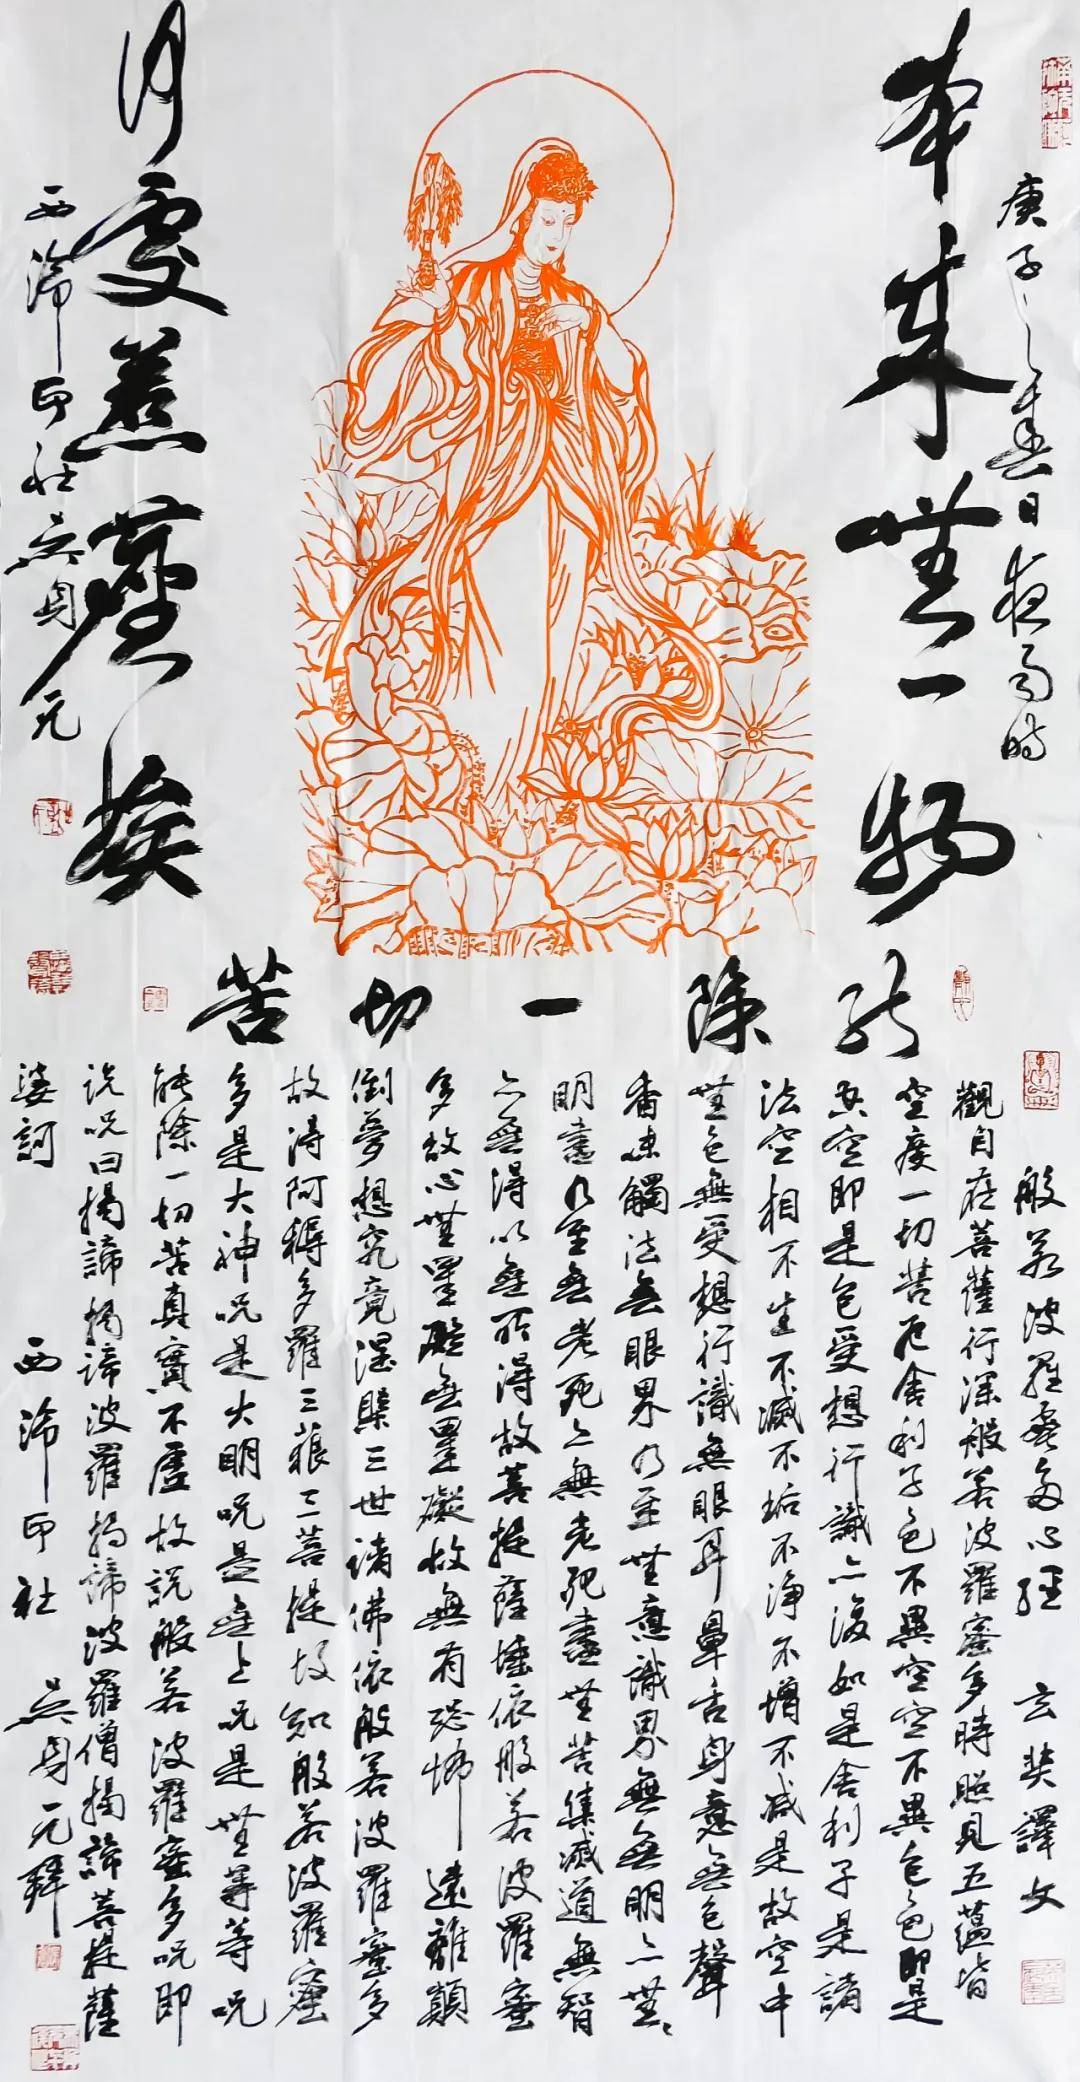 庚子之春日夜雨時
本來無一物
何處惹塵埃
西泠印社吳身元
能除一切苦
般若波羅蜜多心經 玄奘譯文
觀自在菩薩行深般若波羅蜜多時照見五蘊皆
空度一切苦厄舍利子色不異空空不異色色即是
空空即是色受想行識亦復如是舍利子是諸
法空相不生不滅不垢不淨不增不減是故空中
無色無受想行識無眼耳鼻舌身意無色聲
香味觸法無眼界乃至無意識界無無明亦無無
明盡乃至無老死亦無老死盡無苦集滅道無智
亦無得以無所得故菩提薩埵依般若波羅蜜
多故心無罣礙無罣礙故無有恐怖遠離顛
倒夢想究竟涅槃三世諸佛依般若波羅蜜多
故得阿耨多羅三藐三菩提故知般若波羅蜜
多是大神咒是大明咒是無上咒是無等等咒
能除一切苦真實不虛故說般若波羅蜜多咒即
說咒曰揭諦揭諦波羅揭諦波羅僧揭諦菩提薩
婆訶 西泠印社 吳身元拜